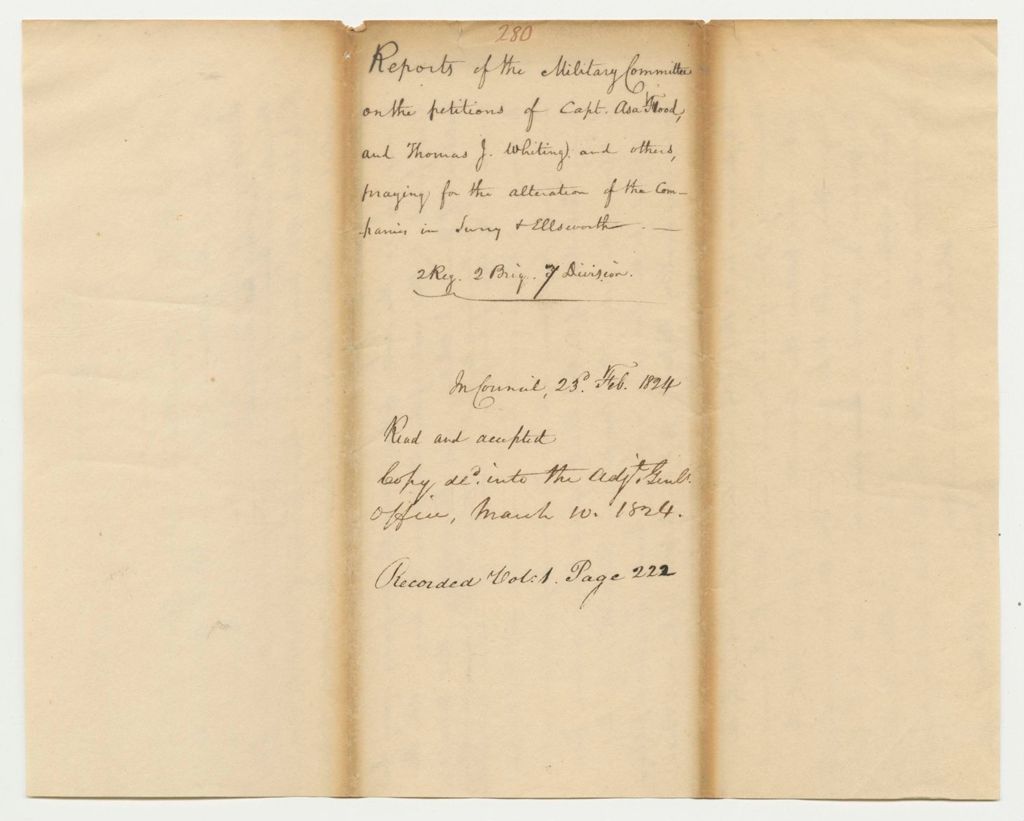 280
Reports of the Military Committee
on the petitions of Capt. Asa Flood,
and Thomas J. Whiting and others,
praying for the alteration of the Com-
panies in Surry & Ellsworth. —
2 Reg. 2 Brig. 7 Division.
In Council, 23d. Feb. 1824
Read and accepted
Copy del. into the Adjt. Genls.
Office, March 10. 1824.
Recorded Vol: 1. Page 222